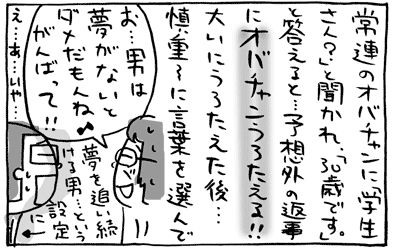 常連のオバチャンに、「学生
さん？」と聞かれ、「30歳です。」
と答えると…予想外の返事
に オバチャンうろたえる!!
大いにうろたえた後…
慎重に言葉を選んで
お…男は
夢がないと
ダメだもんね
がんばって!!
え…あ…いや…
夢を追い続
ける男…という
設定
に